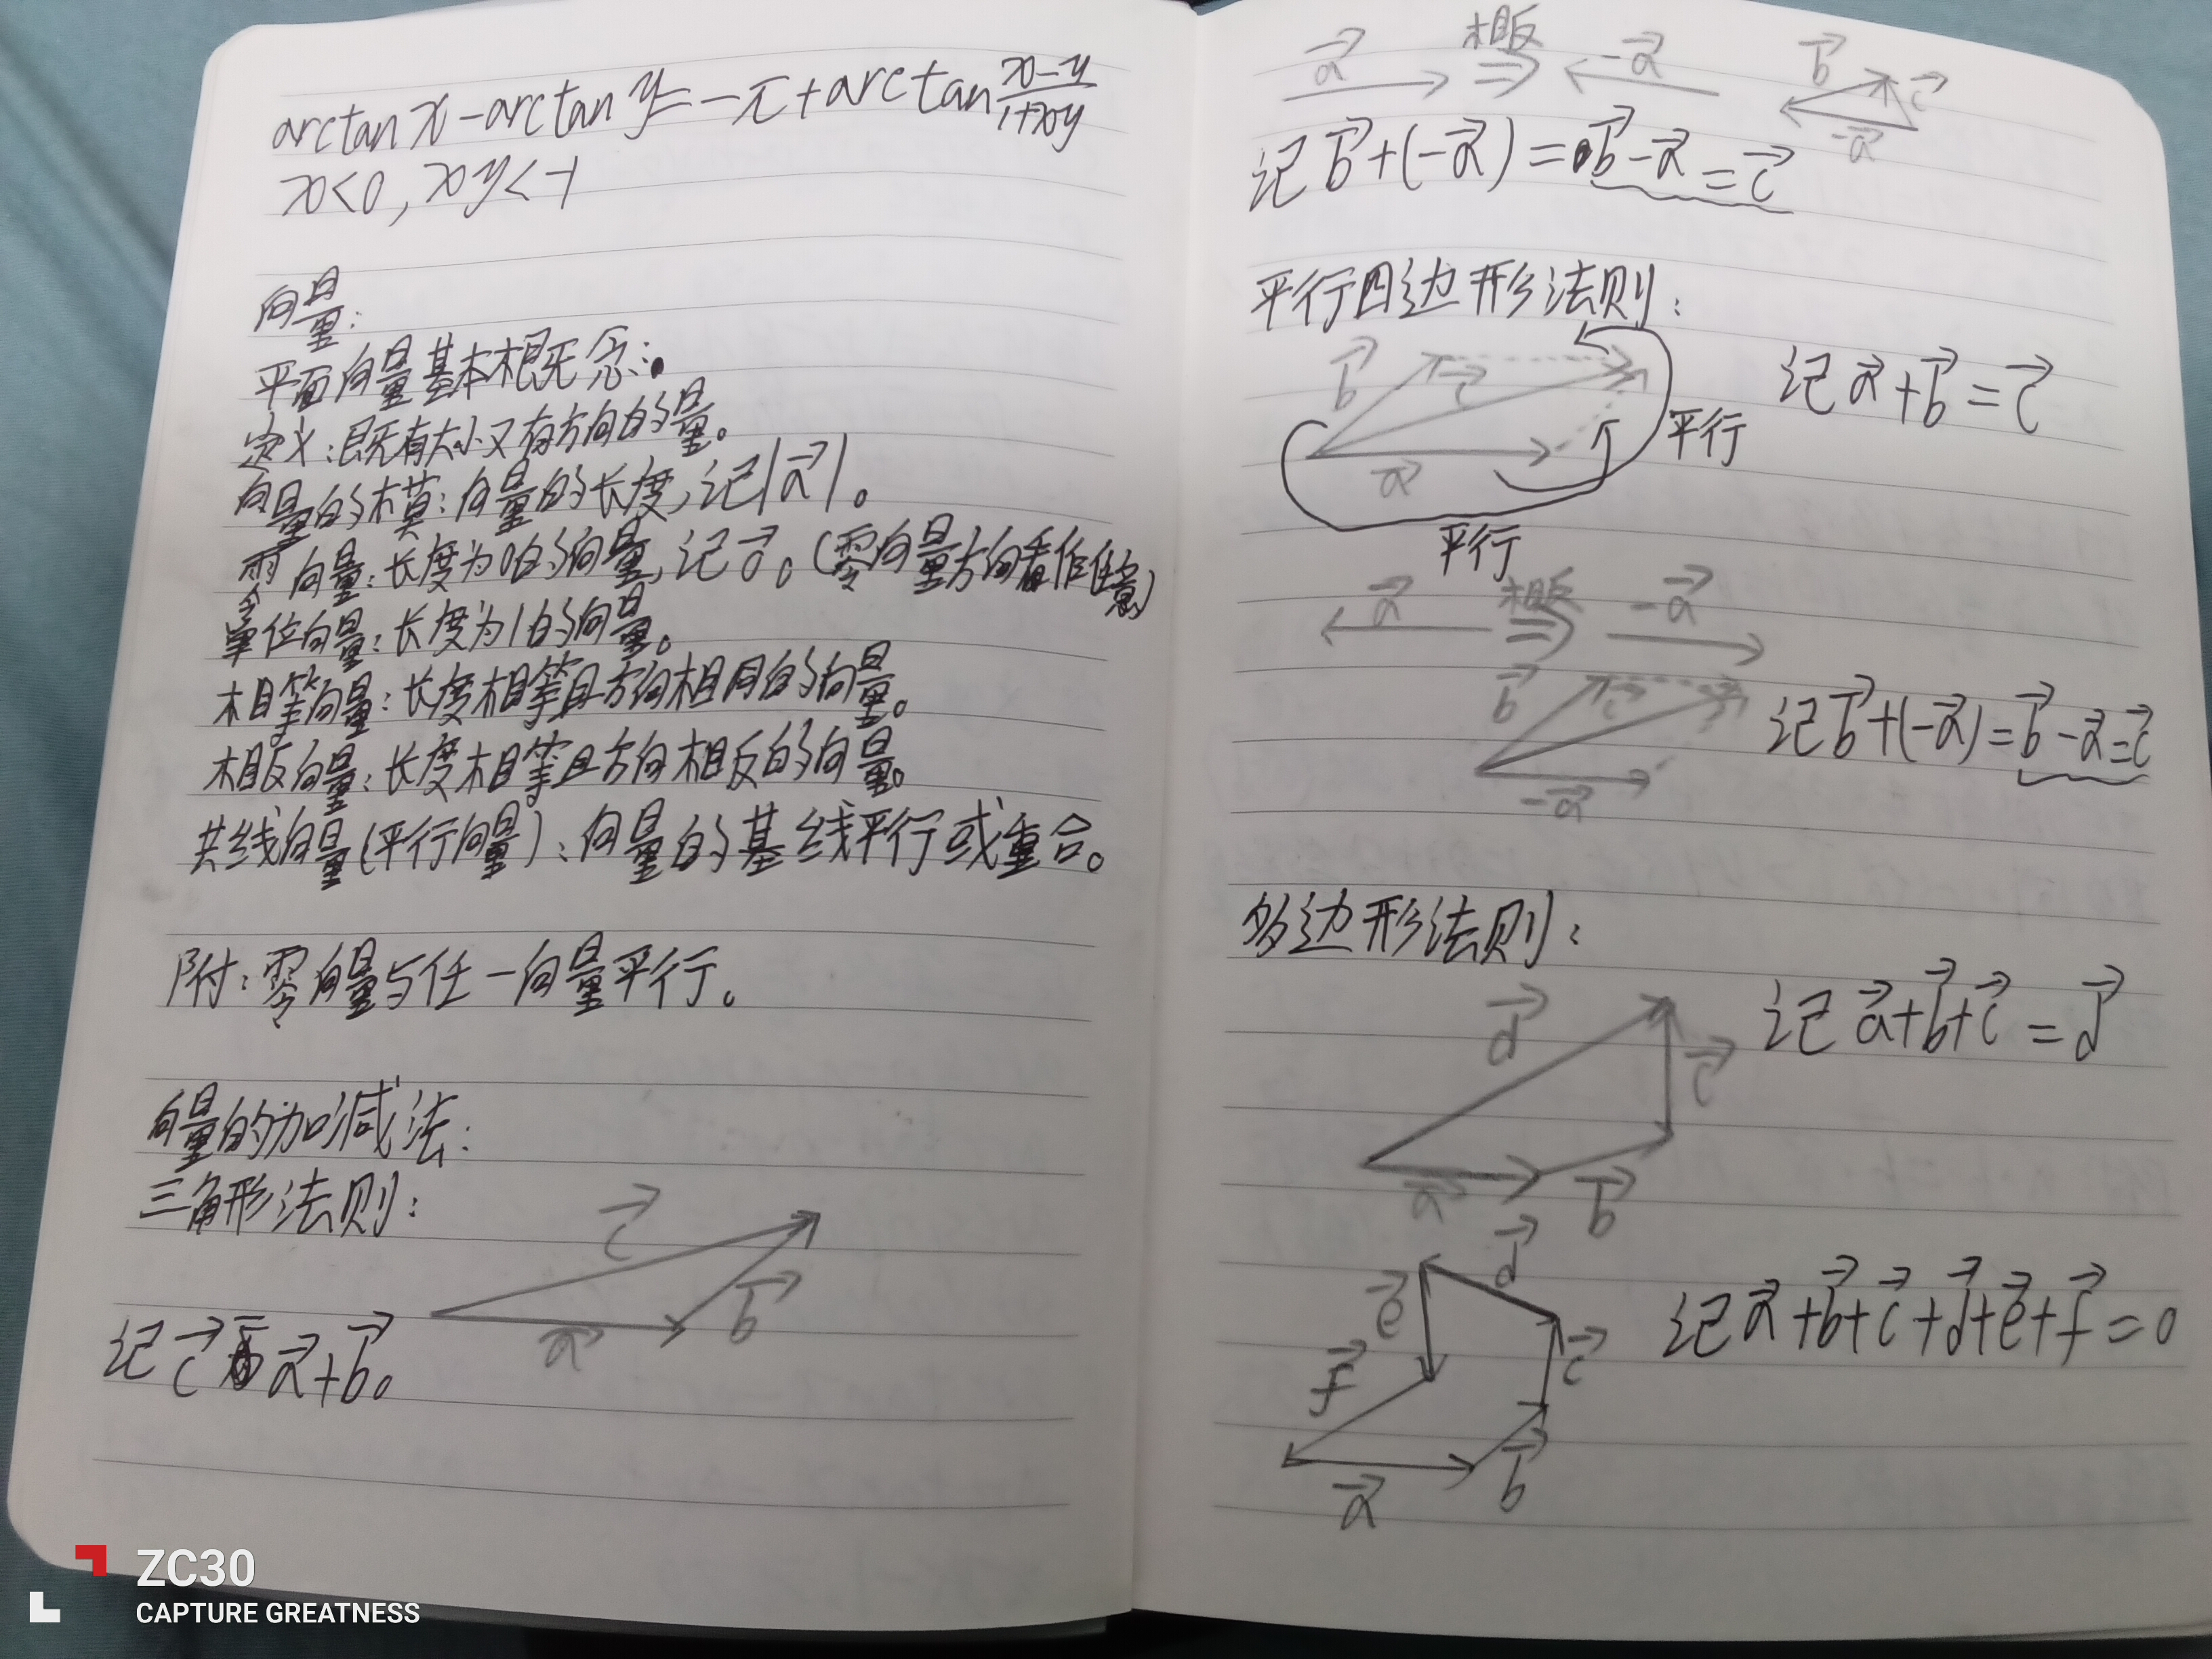 arctan x − arctan y = −π + arctan (x−y)/(1+xy)
x<0, xy<−1
向量:
平面向量基本概念:
定义:既有大小又有方向的量。
向量的模:向量的长度,记|a⃗|。
零向量:长度为0的向量,记0⃗。(零向量方向看作任意)
单位向量:长度为1的向量。
相等向量:长度相等且方向相同的向量。
相反向量:长度相等且方向相反的向量。
共线向量(平行向量):向量的基线平行或重合。
附:零向量与任一向量平行。
向量的加减法:
三角形法则:
c⃗
b⃗
a⃗
记c⃗为a⃗+b⃗。
a⃗ 相反 ⇒ −a⃗
b⃗ c⃗
−a⃗
记b⃗+(−a⃗)=b⃗−a⃗=c⃗
平行四边形法则:
b⃗ c⃗
a⃗
平行
平行
记a⃗+b⃗=c⃗
a⃗ 相反 ⇒ −a⃗
b⃗ c⃗
−a⃗
记b⃗+(−a⃗)=b⃗−a⃗=c⃗
多边形法则:
d⃗
c⃗
a⃗ b⃗
记a⃗+b⃗+c⃗=d⃗
d⃗
e⃗
c⃗
f⃗
b⃗
a⃗
记a⃗+b⃗+c⃗+d⃗+e⃗+f⃗=0
ZC30
CAPTURE GREATNESS